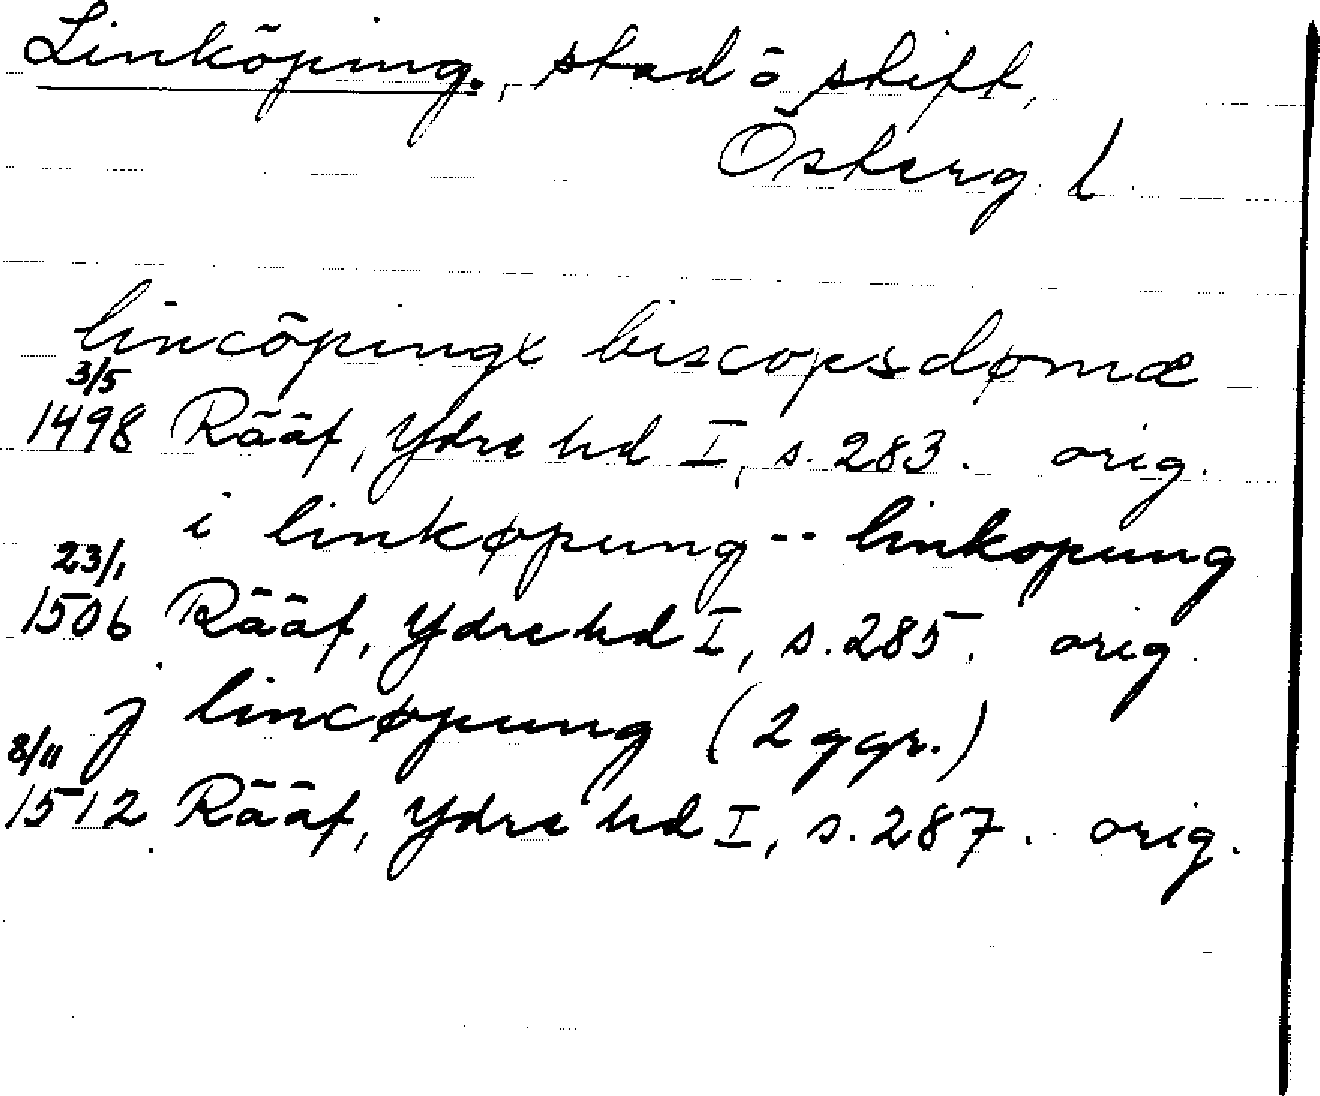 Linköping., stad ö stift,
Österg. l.
lincöpingx biscopsdømæ
3/5
1498 Rääf, Ydre hd I, s. 283. orig.
i linkøpung -- linkopung
23/1
1506 Rääf, Ydre hd I, s. 285. orig.
j lincøpung (2 ggr.)
8/11
1512 Rääf, Ydre hd I, s. 287. orig.